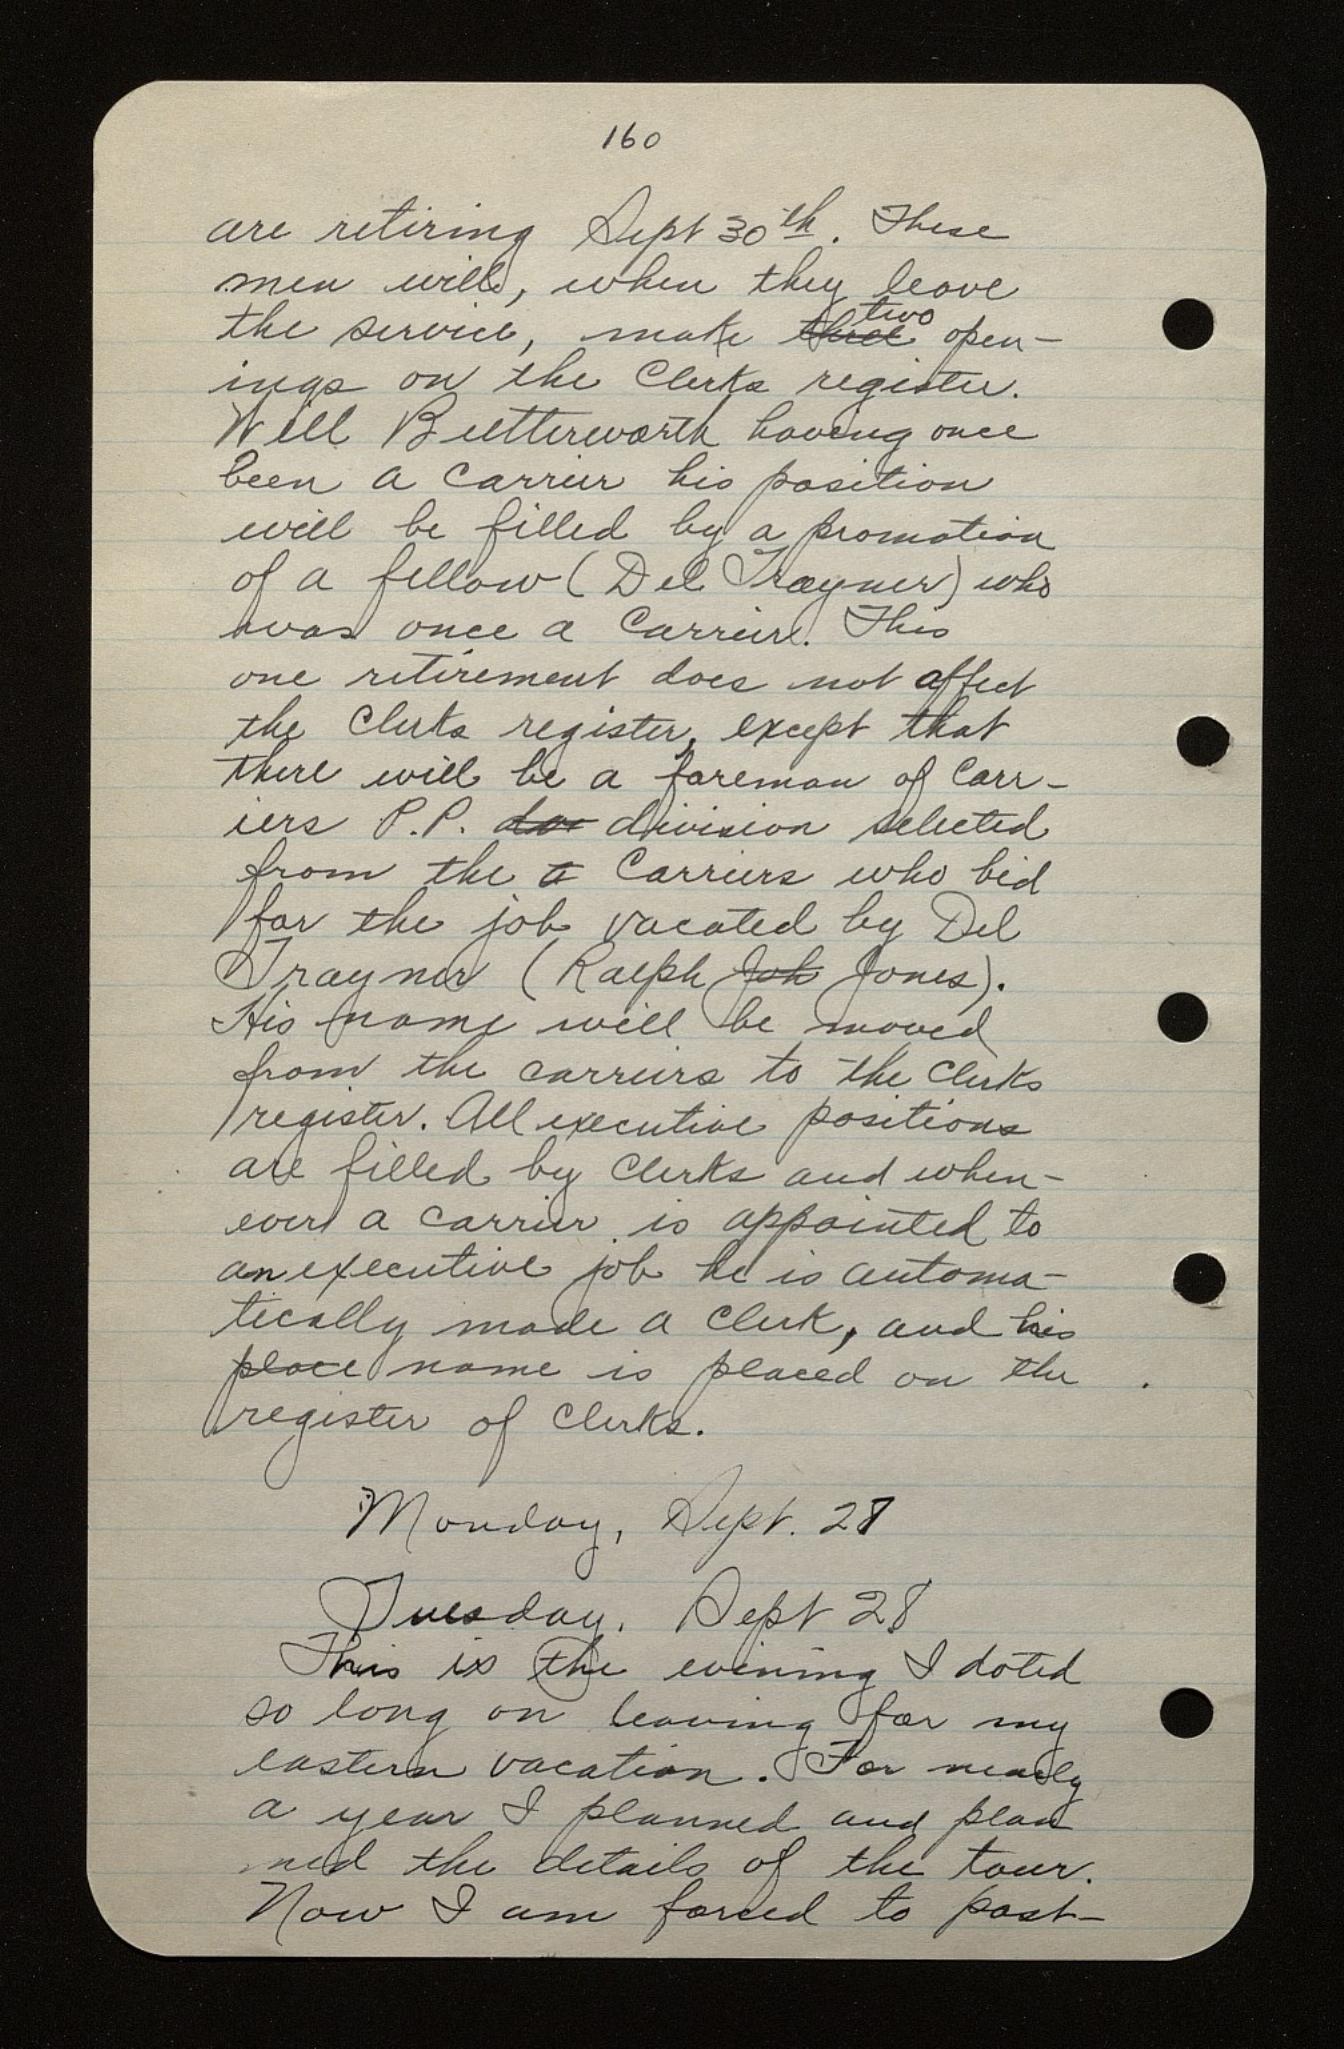 160
are retiring Sept 30th. These
men will, when they leave
the service, make ~~three~~ two open-
ings on the Clerks register.
Will Butterworth having once
been a Carrier his position
will be filled by a promotion
of a fellow (Del Trayner) who
was once a Carrier. This
one retirement does not affect
the Clerks register, except that
there will be a foreman of Carr-
iers P.P. division selected
from the Carriers who bid
for the job vacated by Del
Trayner (Ralph ~~Joh~~ Jones).
His name will be moved
from the carriers to the Clerks
register. All executive positions
are filled by Clerks and when-
ever a carrier is appointed to
an executive job he is automa-
tically made a Clerk, and his
~~place~~ name is placed on the
register of Clerks.
Monday, Sept. 27
Tuesday, Sept 28
This is the evening I doted
so long on leaving for my
eastern vacation. For nearly
a year I planned and plan
ned the details of the tour.
Now I am forced to post-